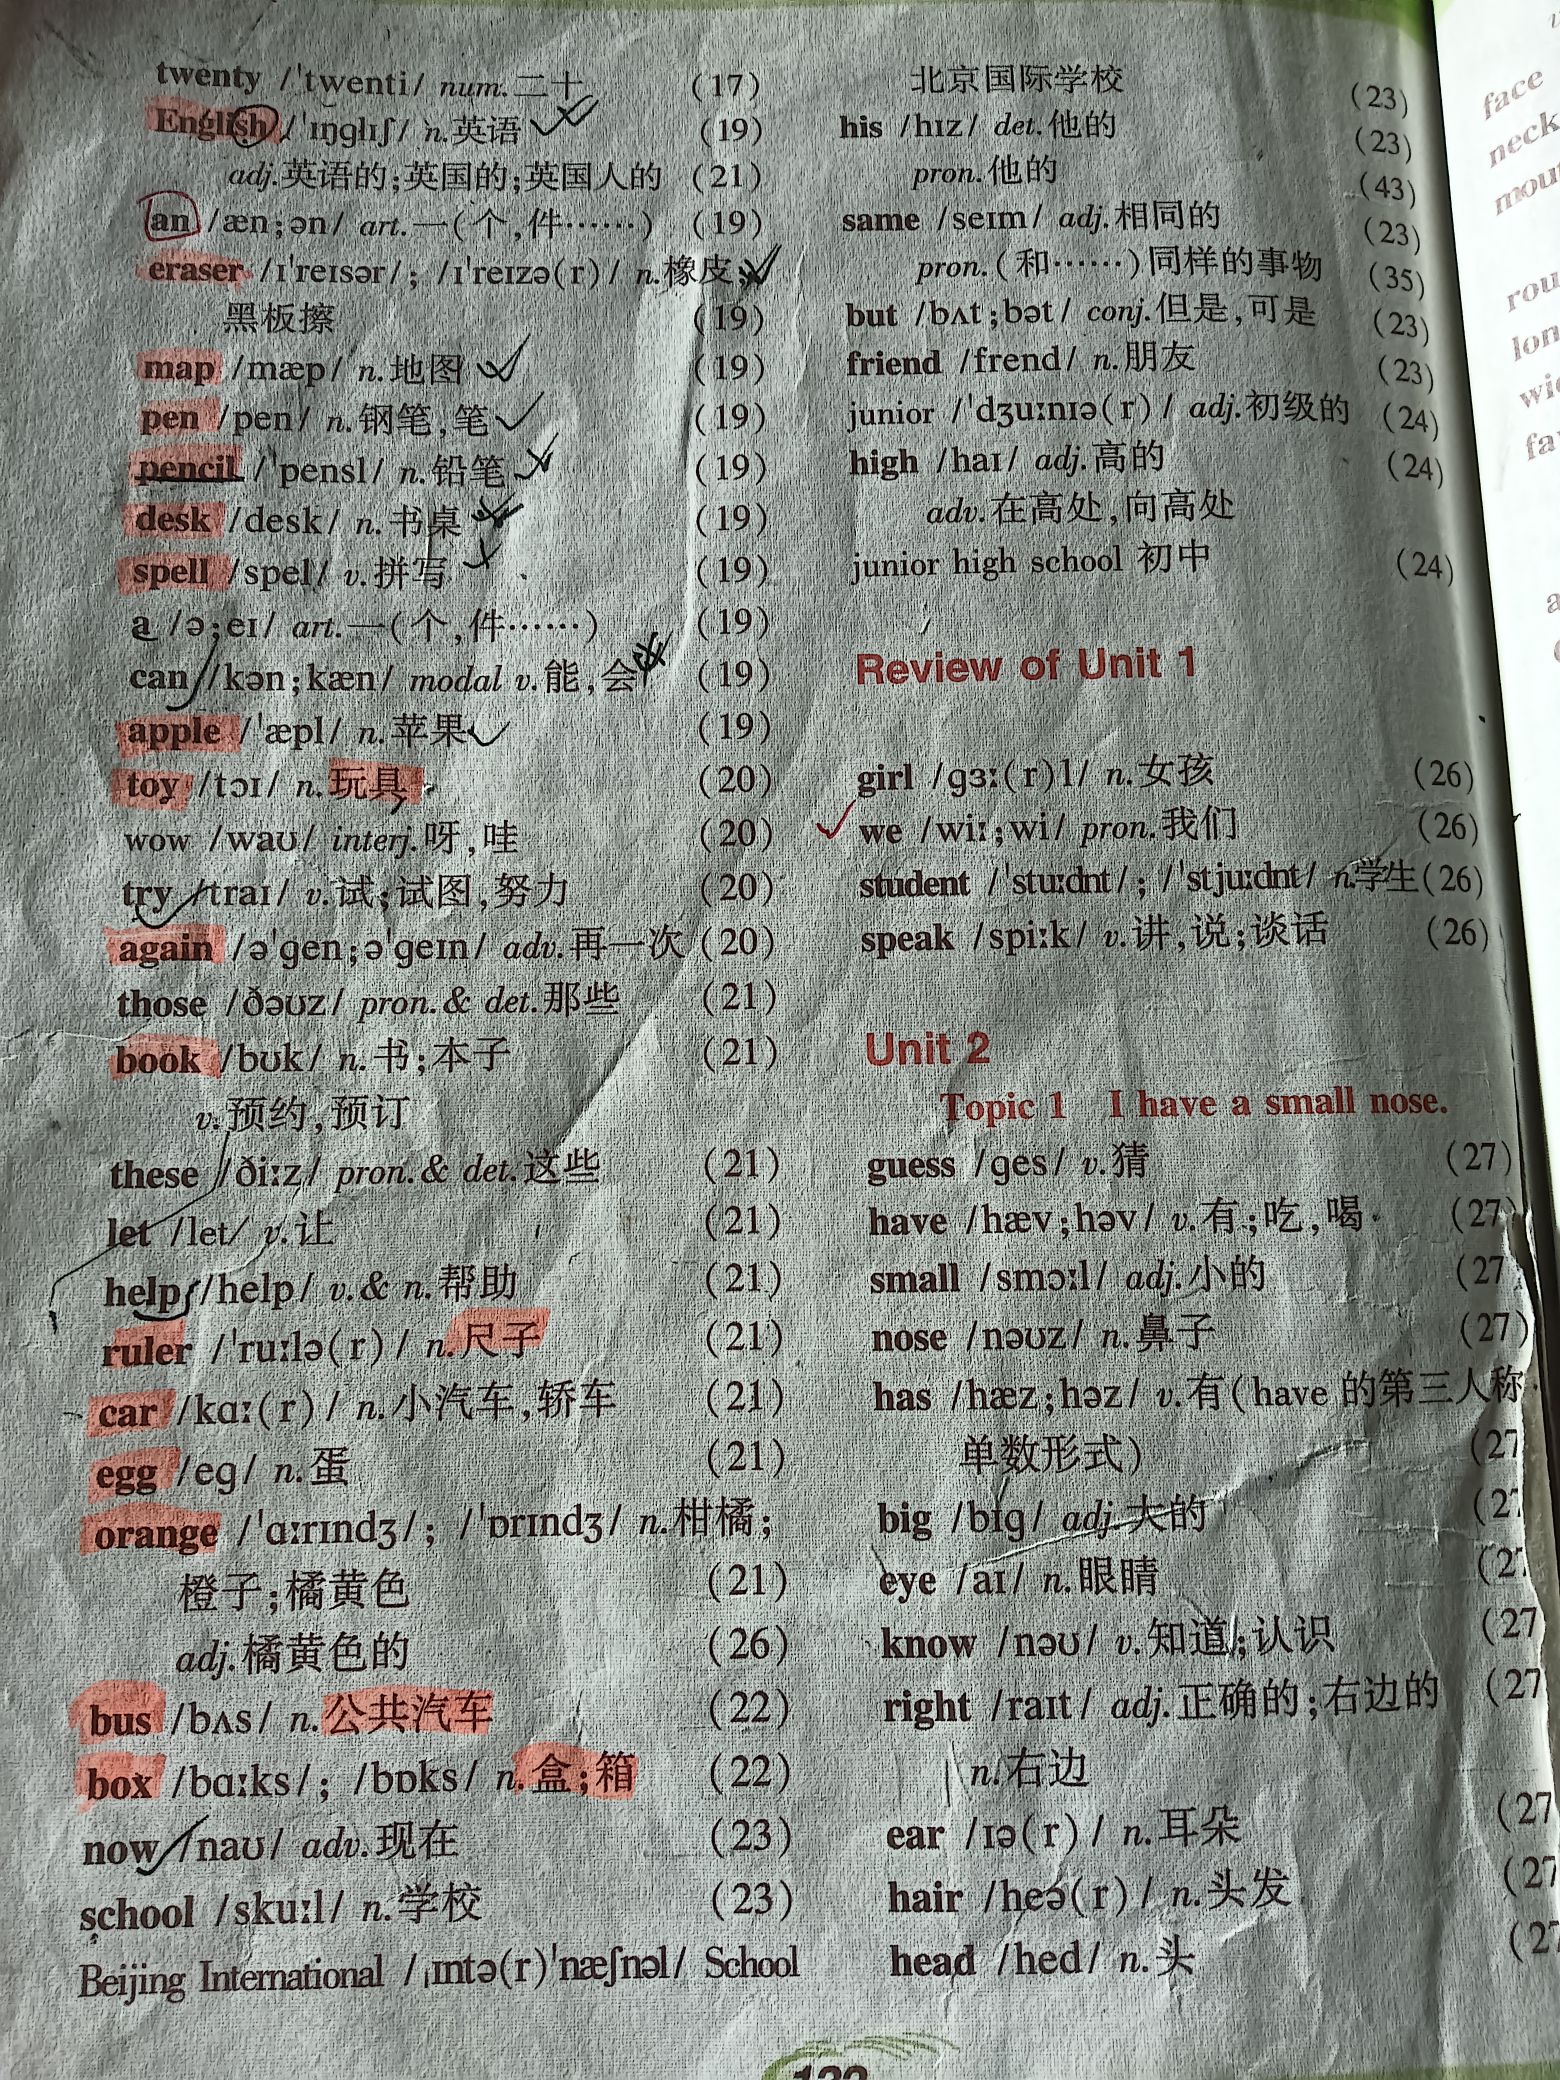 twenty /ˈtwenti/ num.二十 (17)
English /ˈɪŋglɪʃ/ n.英语 (19)
adj.英语的;英国的;英国人的 (21)
an /æn;ən/ art.一(个,件……) (19)
eraser /ɪˈreɪsər/; /ɪˈreɪzə(r)/ n.橡皮;
黑板擦 (19)
map /mæp/ n.地图 (19)
pen /pen/ n.钢笔,笔 (19)
pencil /ˈpensl/ n.铅笔 (19)
desk /desk/ n.书桌 (19)
spell /spel/ v.拼写 (19)
a /ə;eɪ/ art.一(个,件……) (19)
can /kən;kæn/ modal v.能,会 (19)
apple /ˈæpl/ n.苹果 (19)
toy /tɔɪ/ n.玩具 (20)
wow /waʊ/ interj.呀,哇 (20)
try /traɪ/ v.试;试图,努力 (20)
again /əˈgen;əˈgeɪn/ adv.再一次 (20)
those /ðəʊz/ pron.& det.那些 (21)
book /bʊk/ n.书;本子 (21)
v.预约,预订
these /ðiːz/ pron.& det.这些 (21)
let /let/ v.让 (21)
help /help/ v.& n.帮助 (21)
ruler /ˈruːlə(r)/ n.尺子 (21)
car /kɑː(r)/ n.小汽车,轿车 (21)
egg /eg/ n.蛋 (21)
orange /ˈɑːrɪndʒ/; /ˈɒrɪndʒ/ n.柑橘;
橙子;橘黄色 (21)
adj.橘黄色的 (26)
bus /bʌs/ n.公共汽车 (22)
box /bɑːks/; /bɒks/ n.盒;箱 (22)
now /naʊ/ adv.现在 (23)
school /skuːl/ n.学校 (23)
Beijing International /ˌɪntə(r)ˈnæʃnəl/ School
北京国际学校 (23)
his /hɪz/ det.他的 (23)
pron.他的 (43)
same /seɪm/ adj.相同的 (23)
pron.(和……)同样的事物 (35)
but /bʌt;bət/ conj.但是,可是 (23)
friend /frend/ n.朋友 (23)
junior /ˈdʒuːnɪə(r)/ adj.初级的 (24)
high /haɪ/ adj.高的 (24)
adv.在高处,向高处
junior high school 初中 (24)
Review of Unit 1
girl /gɜː(r)l/ n.女孩 (26)
we /wiː;wi/ pron.我们 (26)
student /ˈstuːdnt/; /ˈstjuːdnt/ n.学生(26)
speak /spiːk/ v.讲,说;谈话 (26)
Unit 2
Topic 1 I have a small nose.
guess /ges/ v.猜 (27)
have /hæv;həv/ v.有;吃,喝 (27)
small /smɔːl/ adj.小的 (27
nose /nəʊz/ n.鼻子 (27)
has /hæz;həz/ v.有(have 的第三人称
单数形式) (27
big /bɪg/ adj.大的 (27
eye /aɪ/ n.眼睛 (2
know /nəʊ/ v.知道;认识 (27
right /raɪt/ adj.正确的;右边的 (27
n.右边
ear /ɪə(r)/ n.耳朵 (27
hair /heə(r)/ n.头发 (27
head /hed/ n.头 (27
face
neck